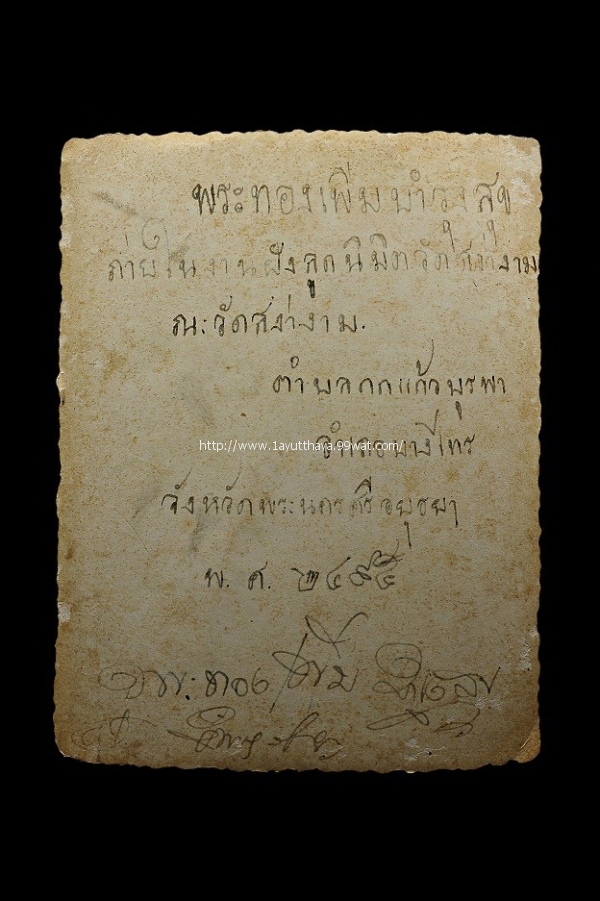 พระทองเพิ่มบำรุงสุข
ถ่ายในงานฝังลูกนิมิตวัดสง่างาม
ณะวัดสง่างาม.
ตำบลกกแก้วบุรพา
อำเภอบางไทร
http://www.1ayutthaya.99wat.com/
จังหวัดพระนครศรีอยุธยา
พ.ศ. ๒๔๙๕
พระทอง เพิ่ม